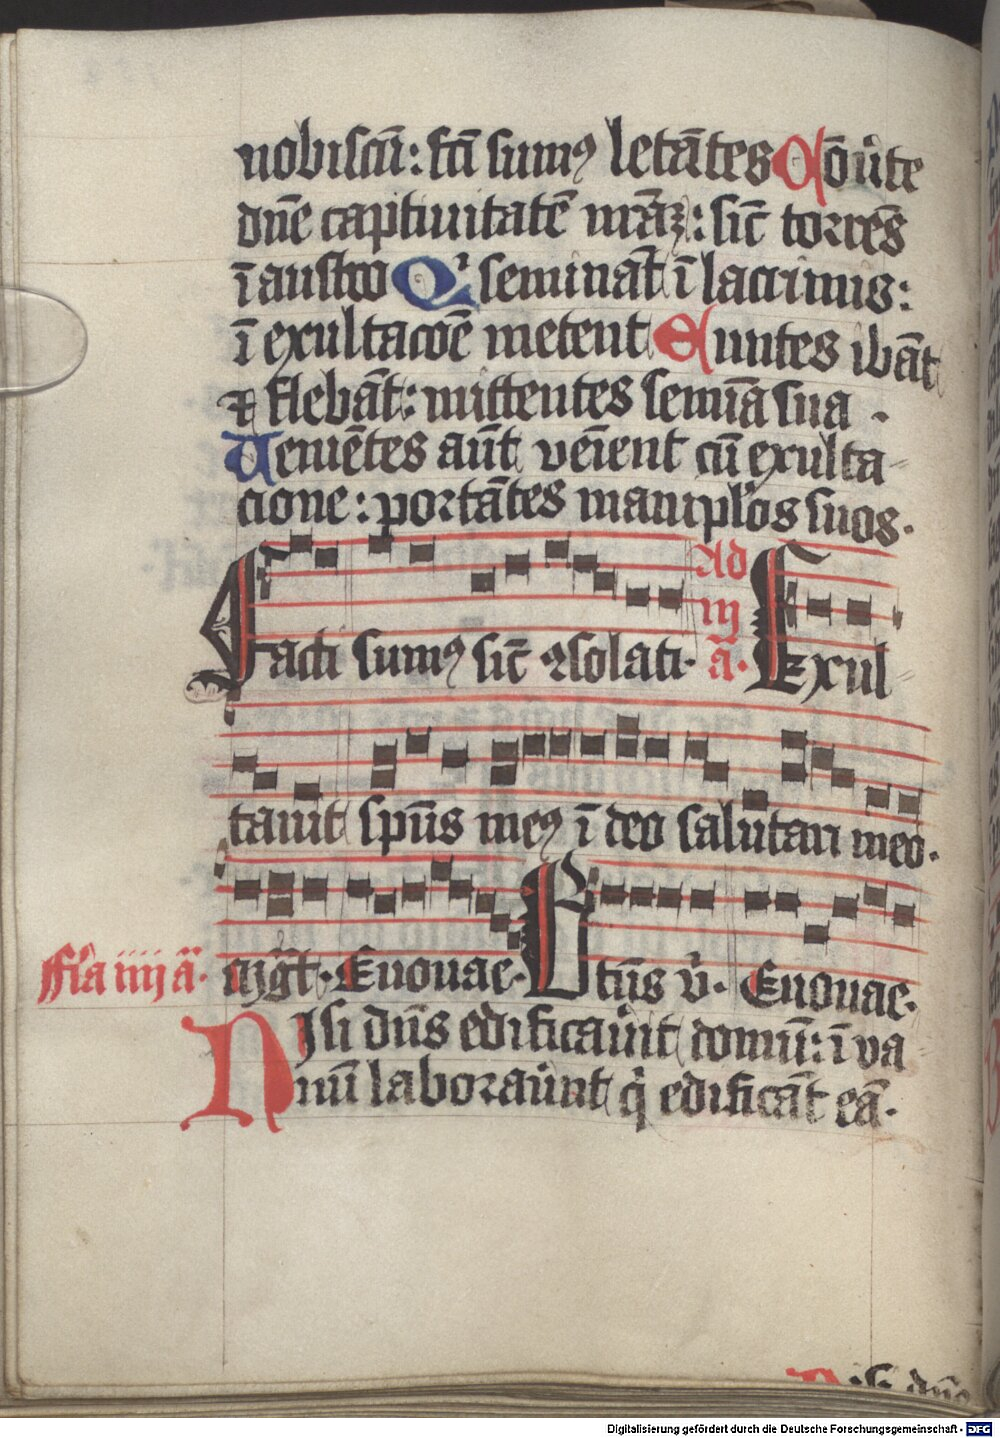 nobiscū: fcī sumꝰ letātes Cōu̾te
dn̄e captiuitatē nr̄aꝫ: sic̄ torrēs
ī austro Qͥ seminat̄ ī lacrimis:
ī exultacōe metent Euntes ibāt
⁊ flebāt: mittentes semīa sua.
Ueniētes aūt veīent cū exulta
cione: portātes manip̄los suos.
Facti sumꝰ sic̄ ꝯsolati. Ad m̄ a̅. Exul
tauit spūs meꝰ ī deo salutari meo.
Fr̄ia iiij a̅. mgt̄. Euouae. Etūs v̾. Euouae.
Nisi dn̄s edificau̾it domū: ī va
nū laborau̾unt qͥ edificāt eā.
Digitalisierung gefördert durch die Deutsche Forschungsgemeinschaft - DFG